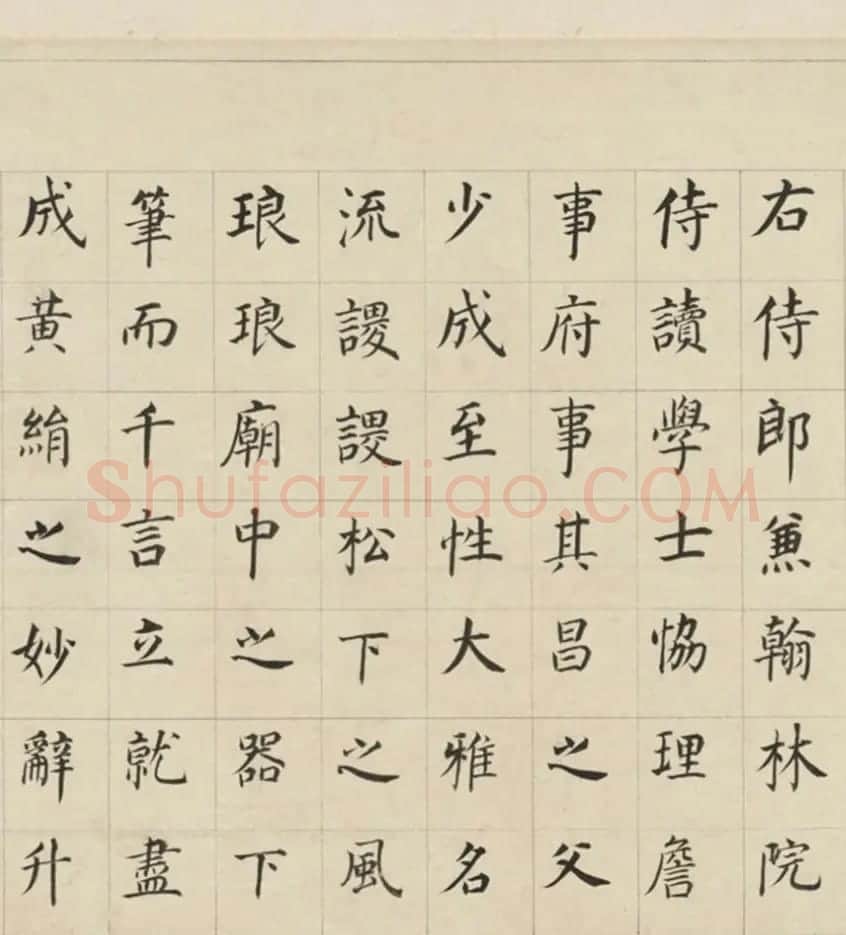 右侍郎兼翰林院
侍讀學士協理詹
事府事其昌之父
少成至性大雅名
流謖謖松下之風
琅琅廟中之器下
筆而千言立就盡
成黃絹之妙辭升
Shufaziliao.COM